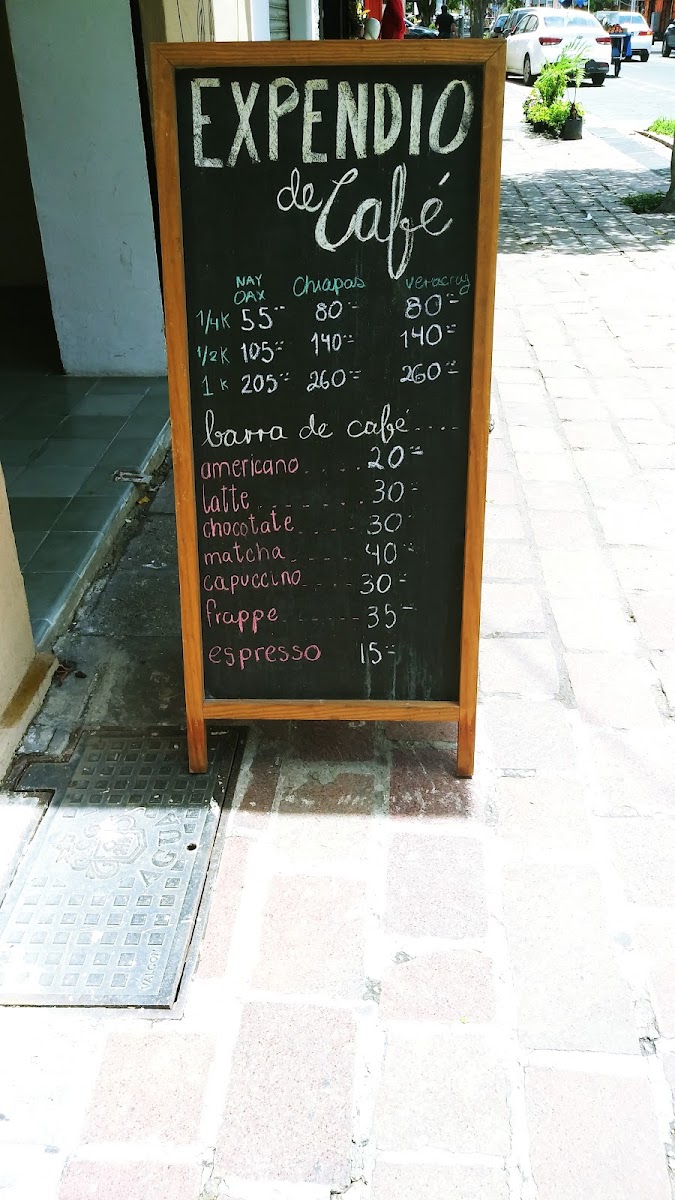 EXPENDIO
de Café
NAY OAX Chiapas Veracruz
1/4K 55 80 80
1/2K 105 140 140
1K 205 260 260
barra de café....
americano..... 20
latte........ 30
chocolate..... 30
matcha..... 40
capuccino..... 30
frappe....... 35
espresso 15
AGUA